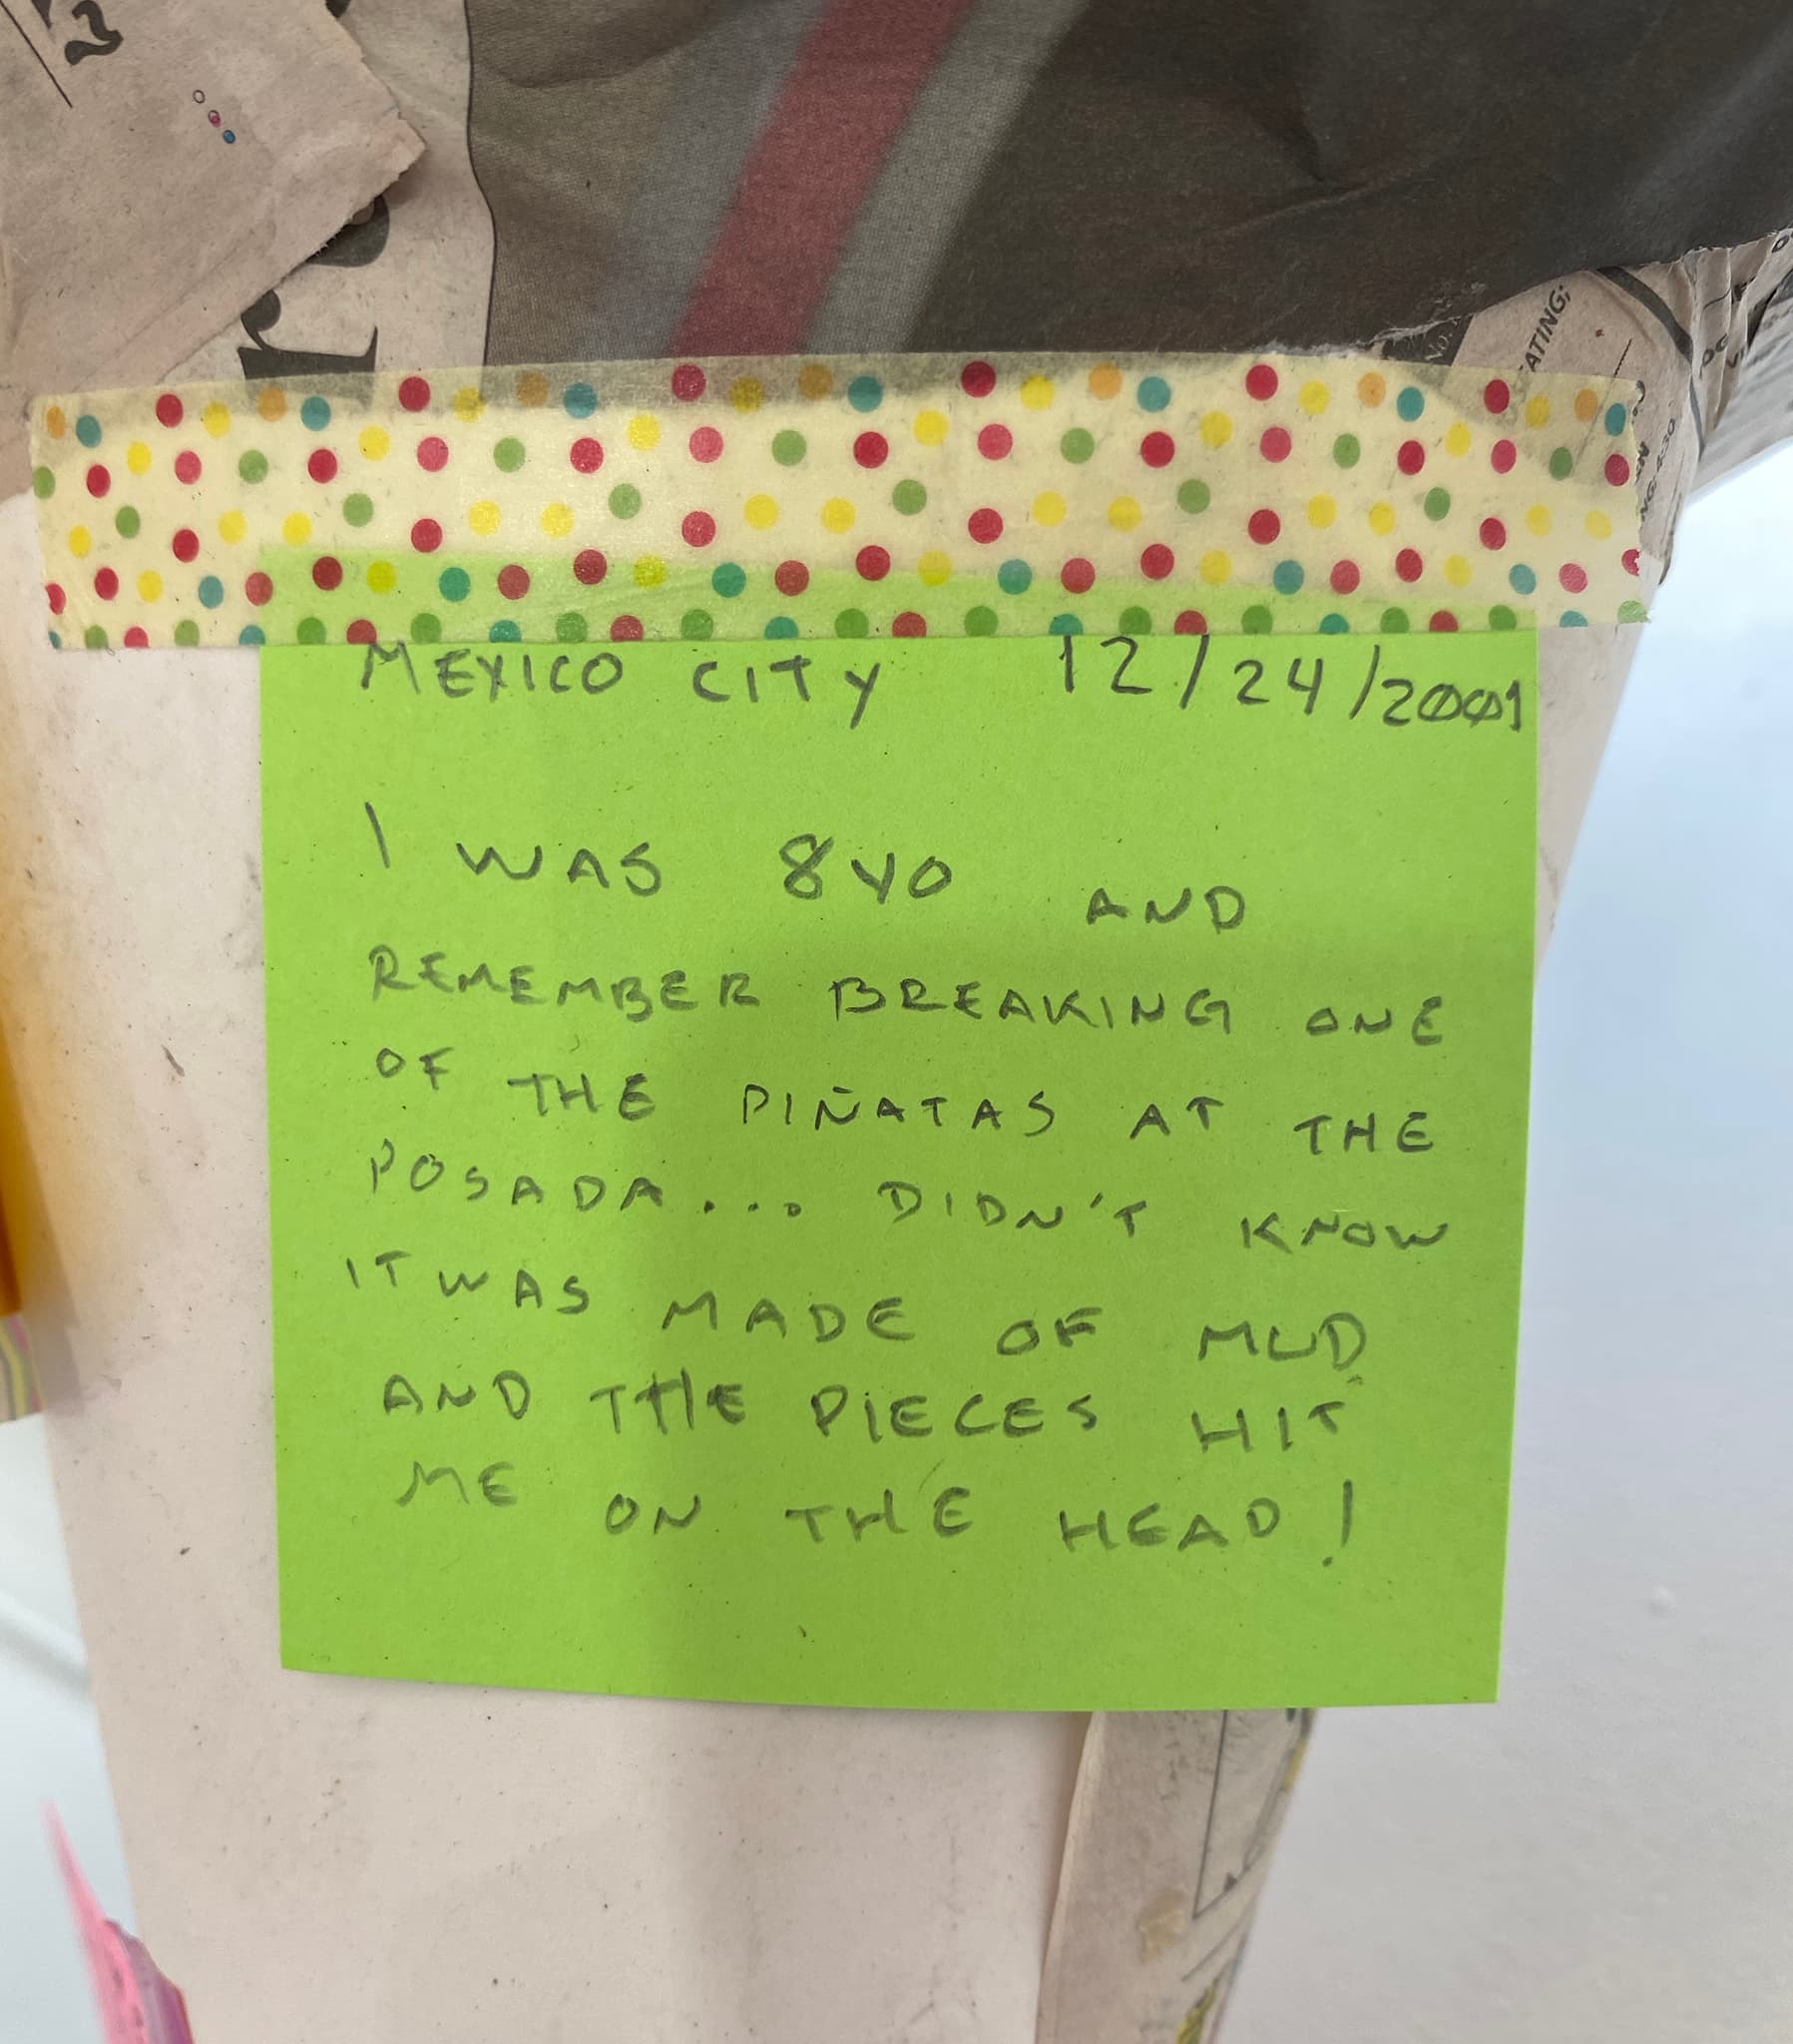 r
MEXICO CITY 12/24/2001
I WAS 8YO AND
REMEMBER BREAKING ONE
OF THE PIÑATAS AT THE
POSADA... DIDN'T KNOW
IT WAS MADE OF MUD
AND THE PIECES HIT
ME ON THE HEAD!